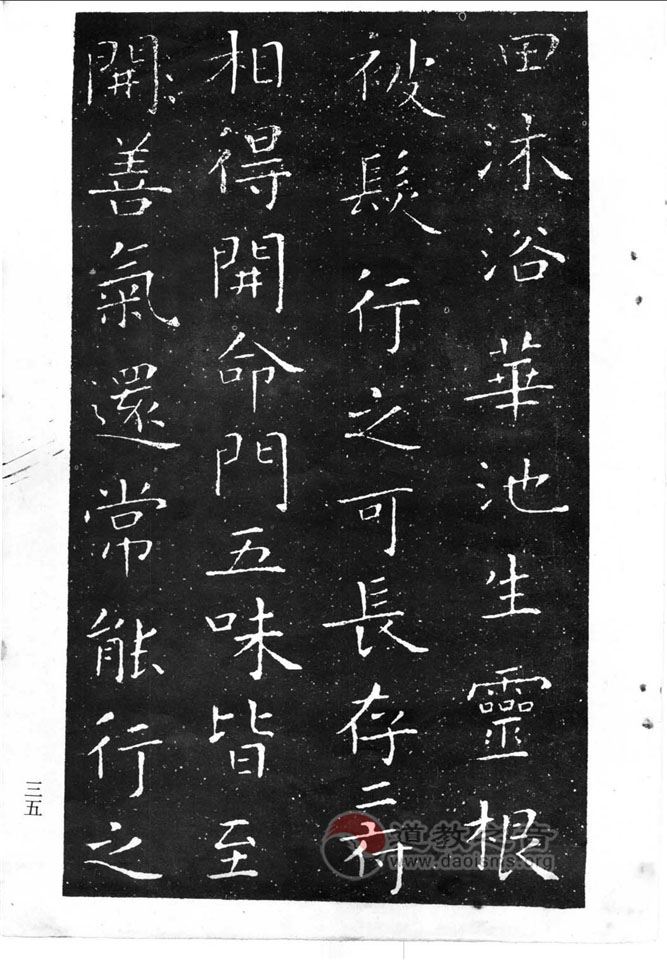 田沐浴華池生靈根
被髮行之可長存二府
相得開命門五味皆至
開善氣還常能行之
三五
道教之音
www.daoisms.org